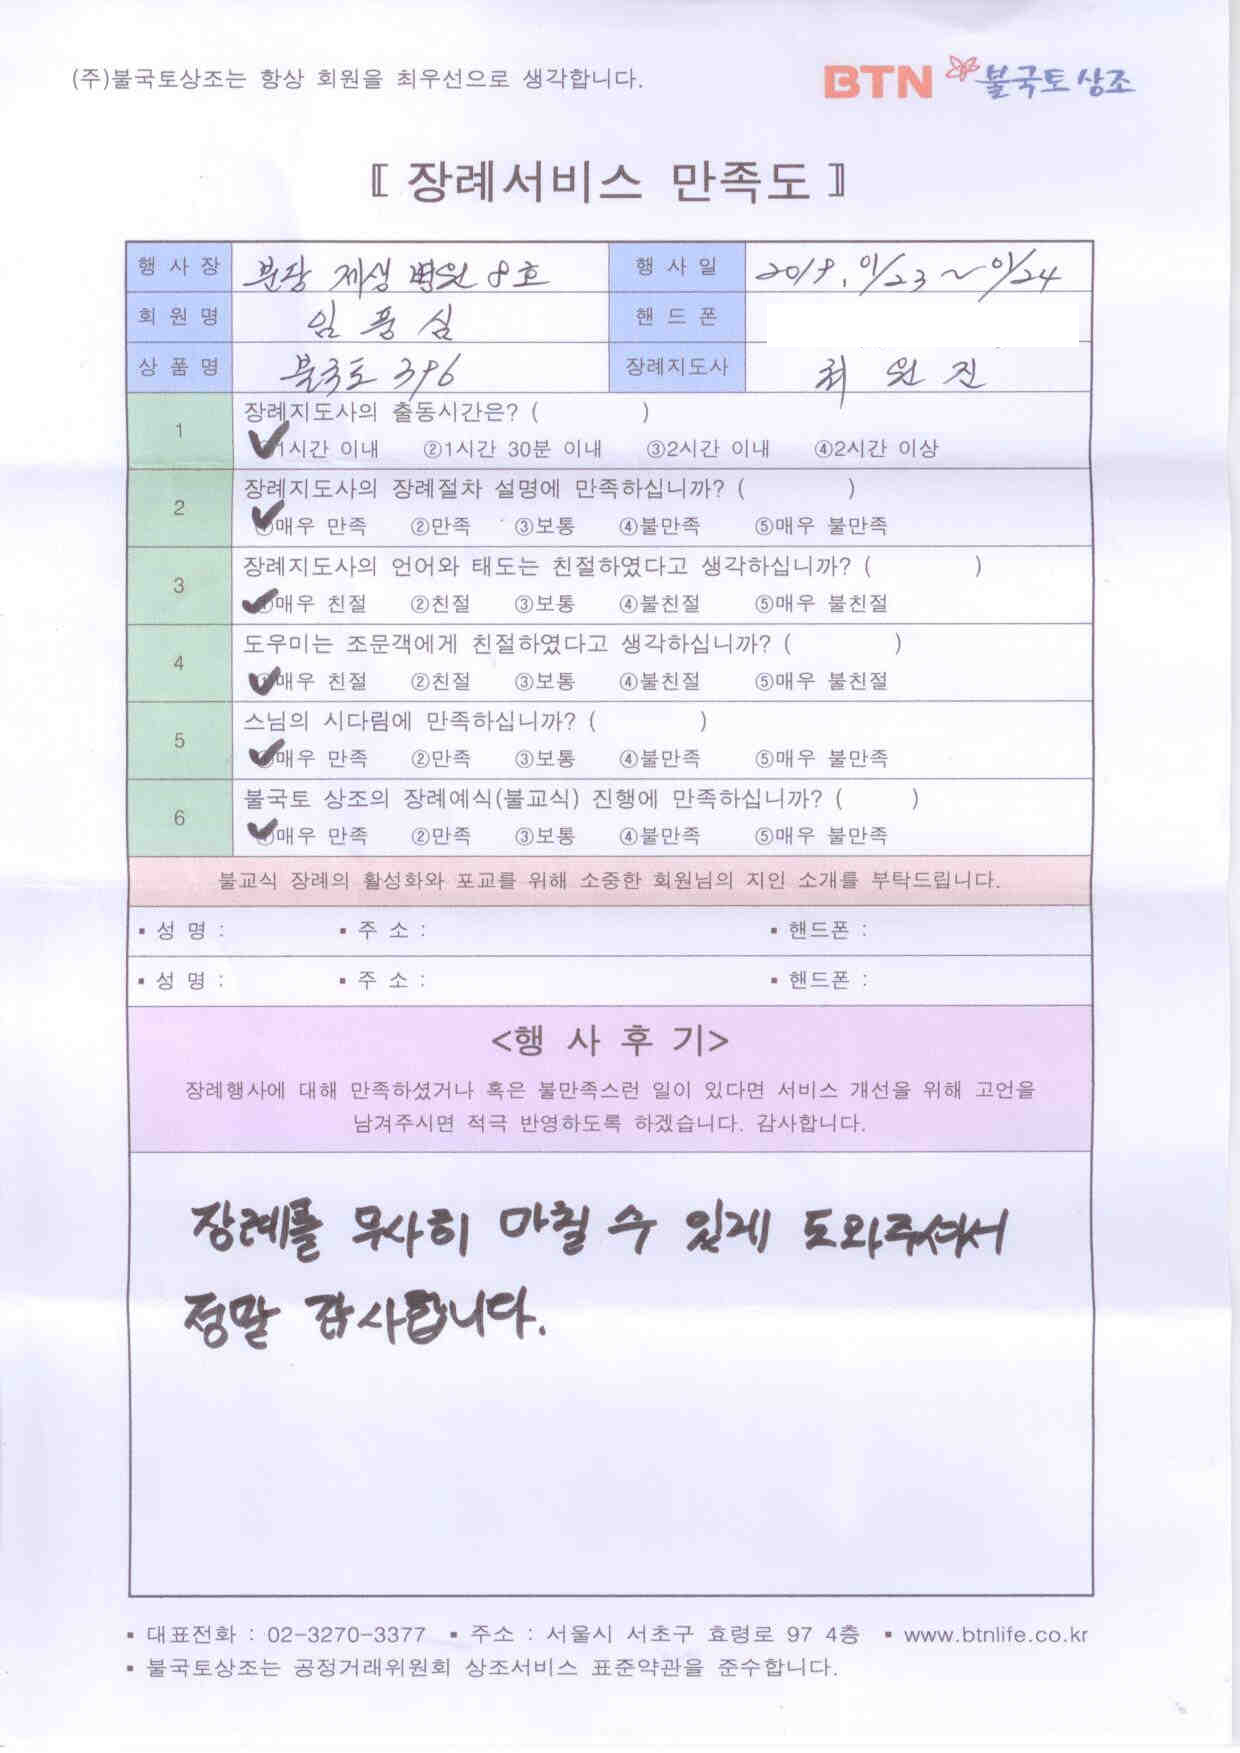 (주)불국토상조는 항상 회원을 최우선으로 생각합니다.
BTN 불국토 상조
〖 장례서비스 만족도 〗
행 사 장 분당 제생 병원 8호 행 사 일 2019. 01/23 ~ 01/24
회 원 명 임 풍 심 핸 드 폰
상 품 명 불국토 396 장례지도사 최 원 진
1 장례지도사의 출동시간은? ( )
✔1시간 이내 ②1시간 30분 이내 ③2시간 이내 ④2시간 이상
2 장례지도사의 장례절차 설명에 만족하십니까? ( )
✔①매우 만족 ②만족 ③보통 ④불만족 ⑤매우 불만족
3 장례지도사의 언어와 태도는 친절하였다고 생각하십니까? ( )
✔①매우 친절 ②친절 ③보통 ④불친절 ⑤매우 불친절
4 도우미는 조문객에게 친절하였다고 생각하십니까? ( )
✔①매우 친절 ②친절 ③보통 ④불친절 ⑤매우 불친절
5 스님의 시다림에 만족하십니까? ( )
✔①매우 만족 ②만족 ③보통 ④불만족 ⑤매우 불만족
6 불국토 상조의 장례예식(불교식) 진행에 만족하십니까? ( )
✔①매우 만족 ②만족 ③보통 ④불만족 ⑤매우 불만족
불교식 장례의 활성화와 포교를 위해 소중한 회원님의 지인 소개를 부탁드립니다.
▪ 성 명 : ▪ 주 소 : ▪ 핸드폰 :
▪ 성 명 : ▪ 주 소 : ▪ 핸드폰 :
<행 사 후 기>
장례행사에 대해 만족하셨거나 혹은 불만족스런 일이 있다면 서비스 개선을 위해 고언을
남겨주시면 적극 반영하도록 하겠습니다. 감사합니다.
장례를 무사히 마칠 수 있게 도와주셔서
정말 감사합니다.
▪ 대표전화 : 02-3270-3377 ▪ 주소 : 서울시 서초구 효령로 97 4층 ▪ www.btnlife.co.kr
▪ 불국토상조는 공정거래위원회 상조서비스 표준약관을 준수합니다.